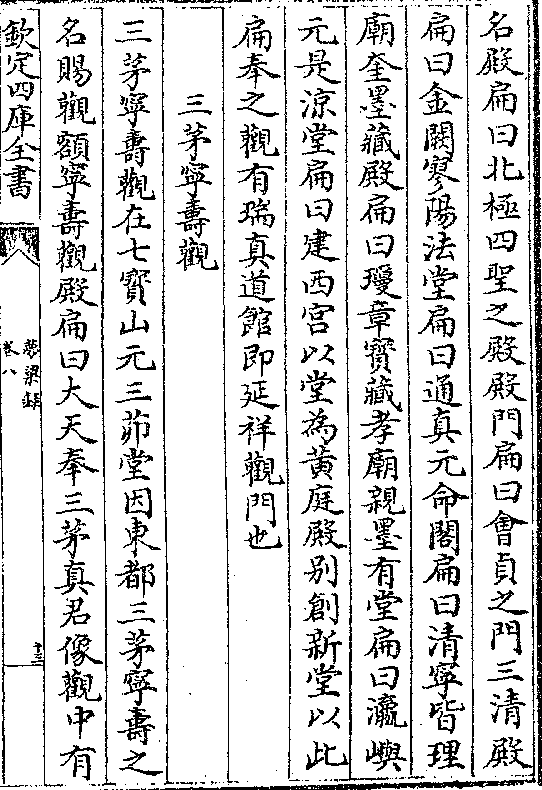 名殿扁曰北極四聖之殿殿門扁曰會貞之門三清殿
扁曰金闕寥陽法堂扁曰通真元命閣扁曰清寧皆理
廟奎墨藏殿扁曰瓊章寳藏孝廟親墨有堂扁曰瀛嶼
元是涼堂扁曰建西宮以堂為黄庭殿别創新堂以此
扁奉之觀有瑞真道館即延祥觀門也
三茅寧壽觀
三茅寧壽觀在七寳山元三茆堂因東都三茅寧壽之
名賜觀額寧壽觀殿扁曰大天奉三茅真君像觀中有
欽定四庫全書
夢粱録
卷八
十三